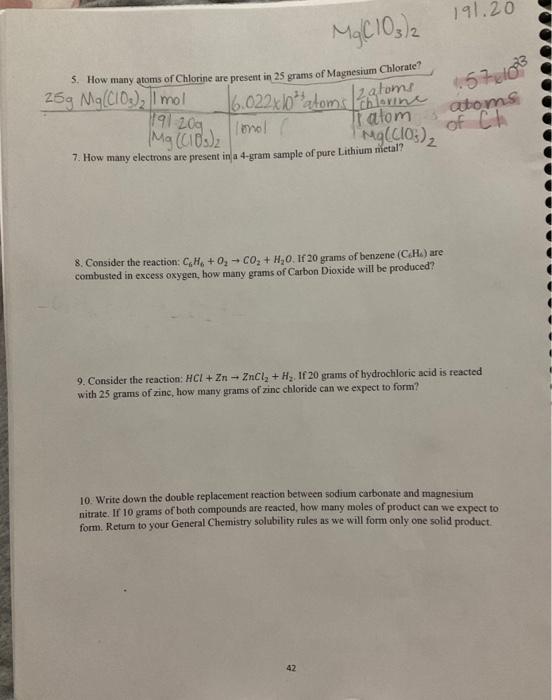 191.20
Mg(ClO3)2
5. How many atoms of Chlorine are present in 25 grams of Magnesium Chlorate?
25g Mg(ClO3)2 1 mol 6.022x10 atoms 2 atoms chlorine 1.57x10²³ atoms of Cl
191.20g Mg(ClO3)2 1 mol 1 atom Mg(ClO3)2
7. How many electrons are present in a 4-gram sample of pure Lithium metal?
8. Consider the reaction: C₆H₆ + O₂ → CO₂ + H₂O. If 20 grams of benzene (C₆H₆) are
combusted in excess oxygen, how many grams of Carbon Dioxide will be produced?
9. Consider the reaction: HCl + Zn → ZnCl₂ + H₂. If 20 grams of hydrochloric acid is reacted
with 25 grams of zinc, how many grams of zinc chloride can we expect to form?
10. Write down the double replacement reaction between sodium carbonate and magnesium
nitrate. If 10 grams of both compounds are reacted, how many moles of product can we expect to
form. Return to your General Chemistry solubility rules as we will form only one solid product.
42